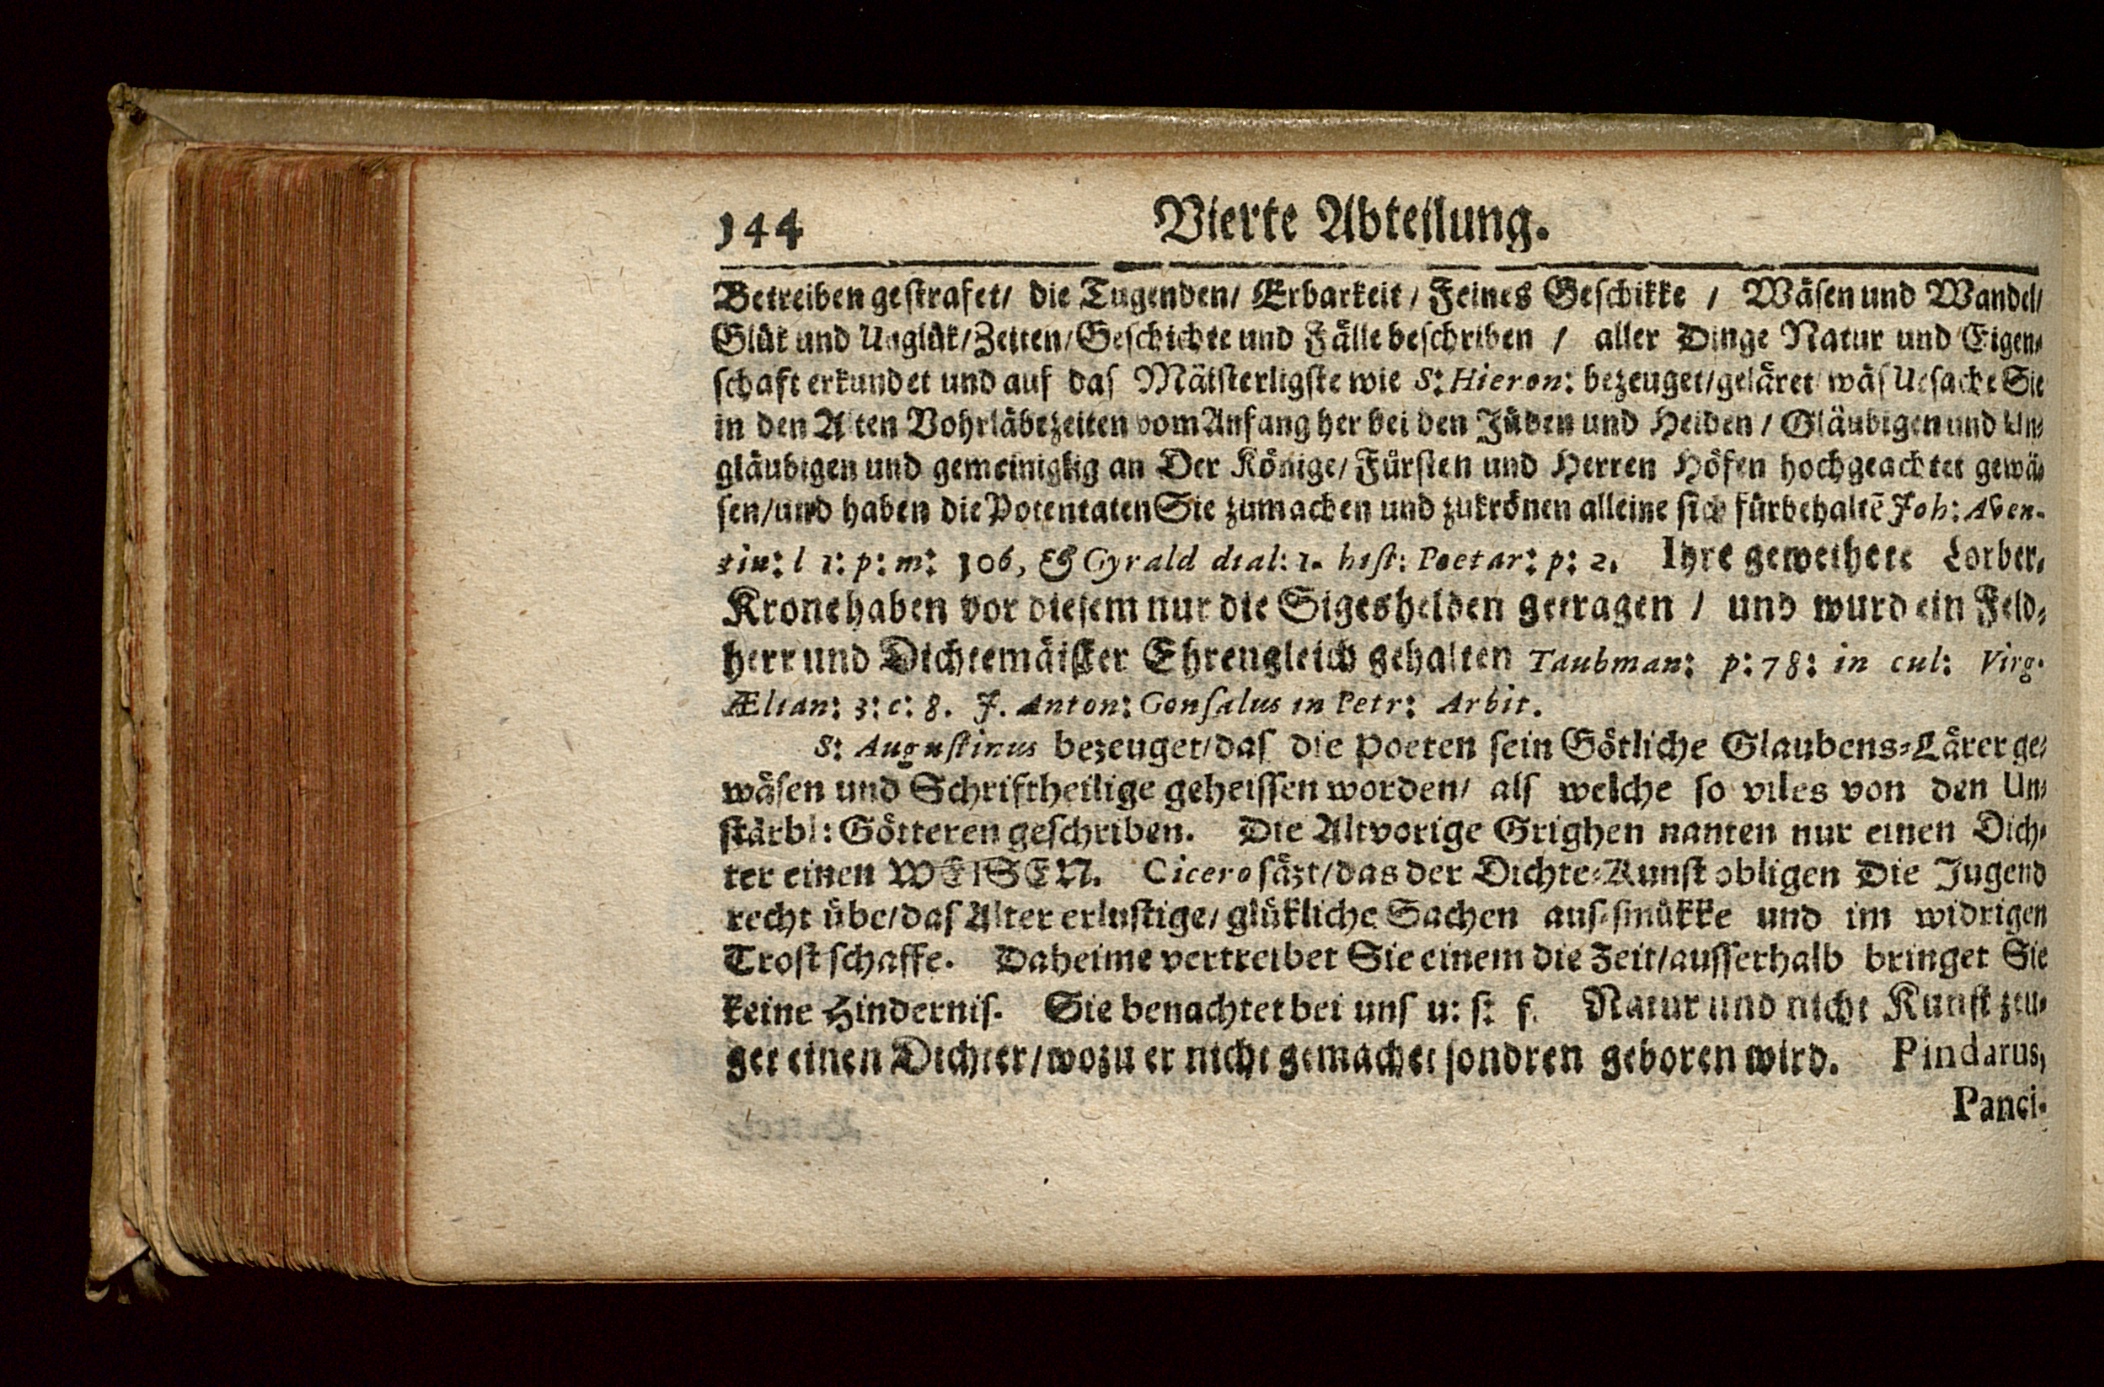 144 Vierte Abteilung.
Betreiben gestrafet/ die Tugenden/ Erbarkeit/ Feines Geschikke / Wäsen und Wandel/
Glük und Unglük/Zeiten/Geschichte und Fälle beschriben / aller Dinge Natur und Eigen-
schaft erkundet und auf das Mäisterligste wie S: Hieron: bezeuget/geläret wäs Uesache Sie
in den Alten Vohrläbezeiten vom Anfang her bei den Jüden und Heiden / Gläubigen und Un-
gläubigen und gemeiniglig an Der Könige/ Fürsten und Herren Höfen hochgeachtet gewä-
sen/und haben die Potentaten Sie zumachen und zukrönen alleine sich fürbehaltē Joh: Aven-
tin: l 1: p: m: 306, & Gyrald dial: 1. hist: Poetar: p: 2. Ihre geweihete Lorber-
Krone haben vor diesem nur die Sigeshelden getragen / und wurd ein Feld-
herr und Dichtemäister Ehrengleich gehalten Taubman: p: 78: in cul: Virg.
Ælian: 3: c: 8. J. Anton: Gonsalus in Petr: Arbit.
S: Augustinus bezeuget/das die Poeten sein Götliche Glaubens-Lärer ge-
wäsen und Schriftheilige geheissen worden/ als welche so viles von den Un-
stärbl: Götteren geschriben. Die Altvorige Grighen nanten nur einen Dich-
ter einen WEISEN. Cicero säzt/das der Dichte-Kunst obligen Die Jugend
recht übe/das Alter erlustige/ glükliche Sachen aus-smükke und im widrigen
Trost schaffe. Daheime vertreibet Sie einem die Zeit/ausserhalb bringet Sie
keine Hindernis. Sie benachtet bei uns u: s: f. Natur und nicht Kunst zeu-
get einen Dichter/wozu er nicht gemachet sondren geboren wird. Pindarus,
Panci-